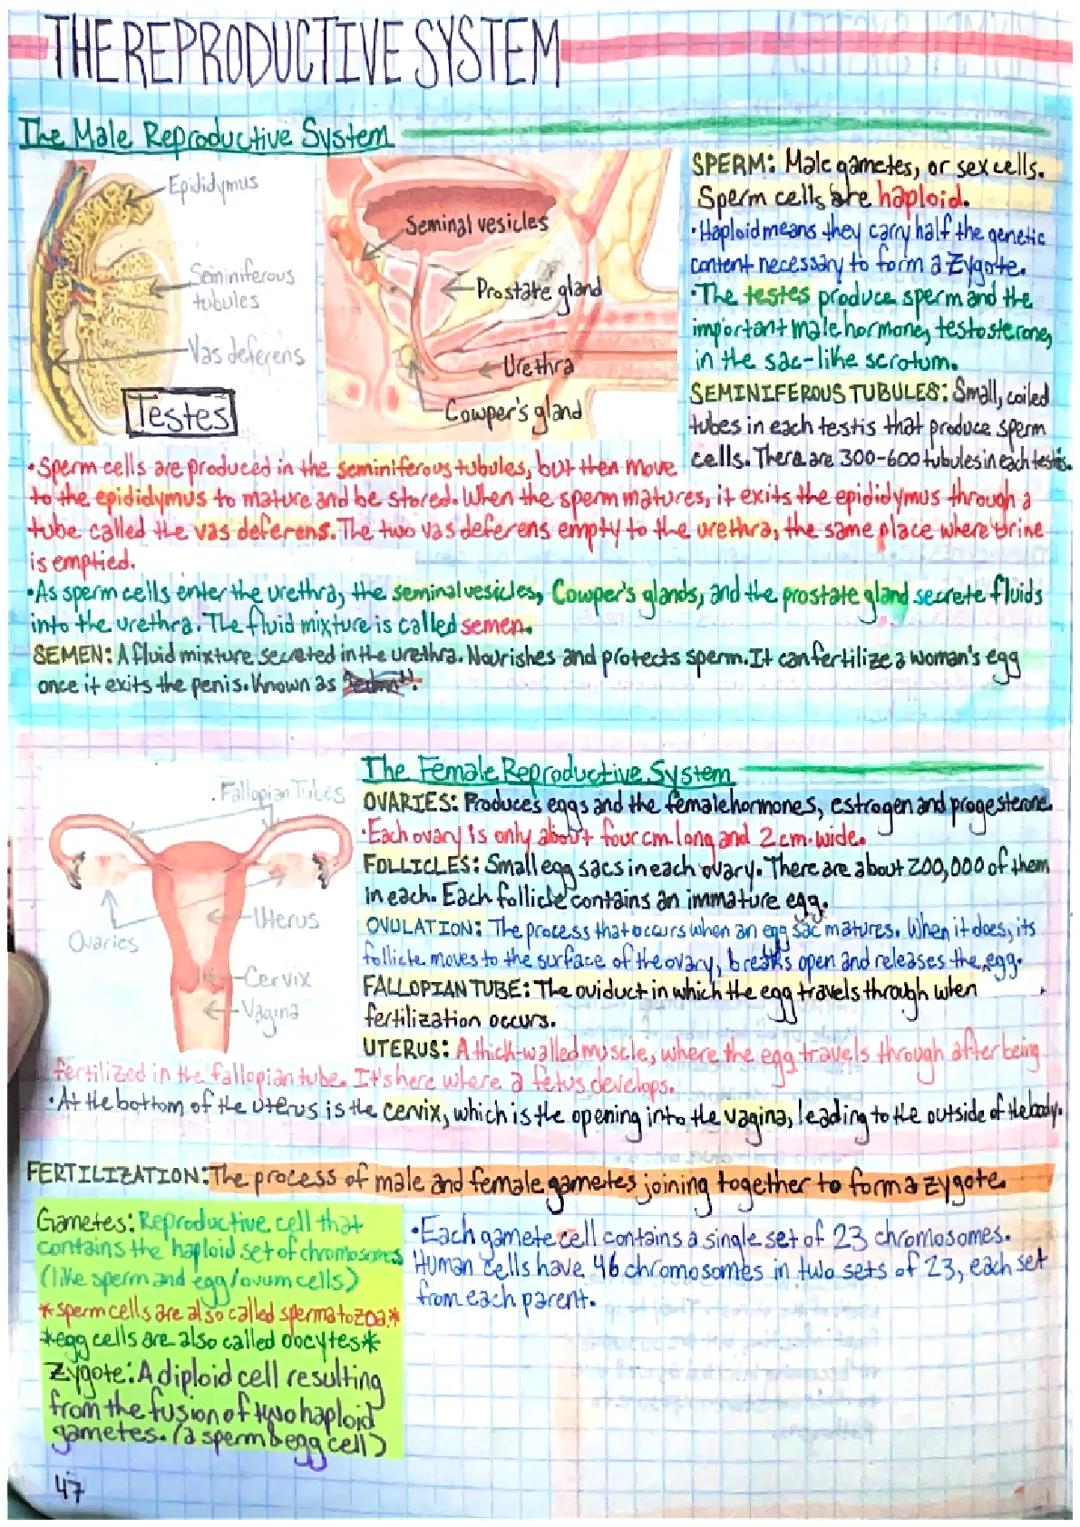 THE REPRODUCTIVE SYSTEM
The Male Reproductive System
Epididymus
Seminiferous
tubules
Vas deferens
Testes
Seminal vesicles
Prostate gland
Urethra
Cowper's gland
SPERM: Male gametes, or sex cells.
Sperm cells are haploid.
•Haploid means they carry half the genetic
content necessary to form a zygote.
•The testes produce sperm and the
important male hormone, testosterone,
in the sac-like scrotum.
SEMINIFEROUS TUBULES: Small, coiled
tubes in each testis that produce sperm
cells. There are 300-600 tubules in each testis.
•Sperm cells are produced in the seminiferous tubules, but then move
to the epididymus to mature and be stored. When the sperm matures, it exits the epididymus through a
tube called the vas deferens. The two vas deferens empty to the urethra, the same place where urine
is emptied.
•As sperm cells enter the urethra, the seminal vesicles, Cowper's glands, and the prostate gland secrete fluids
into the urethra. The fluid mixture is called semen.
SEMEN: A fluid mixture secreted in the urethra. Nourishes and protects sperm. It can fertilize a woman's egg
once it exits the penis. Known as
The Female Reproductive System
Fallopian Tubes
Ovaries
Uterus
Cervix
Vagina
OVARIES: Produces eggs and the female hormones, estrogen and progesterone.
•Each ovary is only about four cm. long and 2 cm. wide.
FOLLICLES: Small egg sacs in each ovary. There are about 200,000 of them
in each. Each follicle contains an immature egg.
OVULATION: The process that occurs when an egg sac matures. When it does, its
follicle moves to the surface of the ovary, breaks open and releases the egg.
FALLOPIAN TUBE: The oviduct in which the egg travels through when
fertilization occurs.
UTERUS: A thick-walled muscle, where the egg travels through after being
fertilized in the fallopian tube. It's here where a fetus develops.
•At the bottom of the uterus is the cervix, which is the opening into the vagina, leading to the outside of the body.
FERTILIZATION: The process of male and female gametes joining together to form a zygote.
Gametes: Reproductive cell that
contains the haploid set of chromosomes
(like sperm and egg/ovum cells)
*sperm cells are also called spermatozoa*
*egg cells are also called oocytes*
Zygote: A diploid cell resulting
from the fusion of two haploid
gametes. (a sperm & egg cell)
•Each gamete cell contains a single set of 23 chromosomes.
Human cells have 46 chromosomes in two sets of 23, each set
from each parent.
47